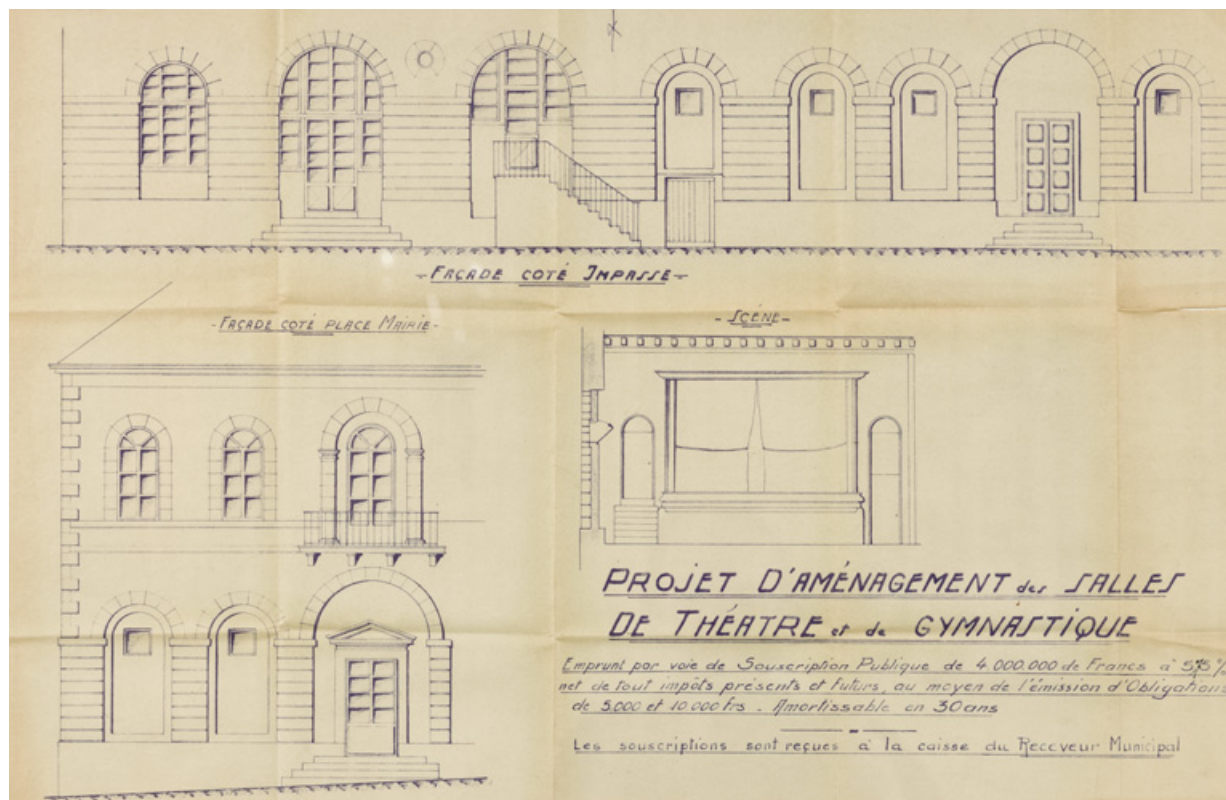 - FAÇADE COTÉ IMPASSE -
- FAÇADE COTÉ PLACE MAIRIE -
- SCÉNE -
PROJET D'AMÉNAGEMENT des SALLES
DE THÉATRE et de GYMNASTIQUE
Emprunt par voie de Souscription Publique de 4.000.000 de Francs à %
net de tout impôts présents et futurs, au moyen de l'émission d'Obligations
de 5.000 et 10.000 frs. Amortissable en 30 ans
Les souscriptions sont reçues à la caisse du Receveur Municipal